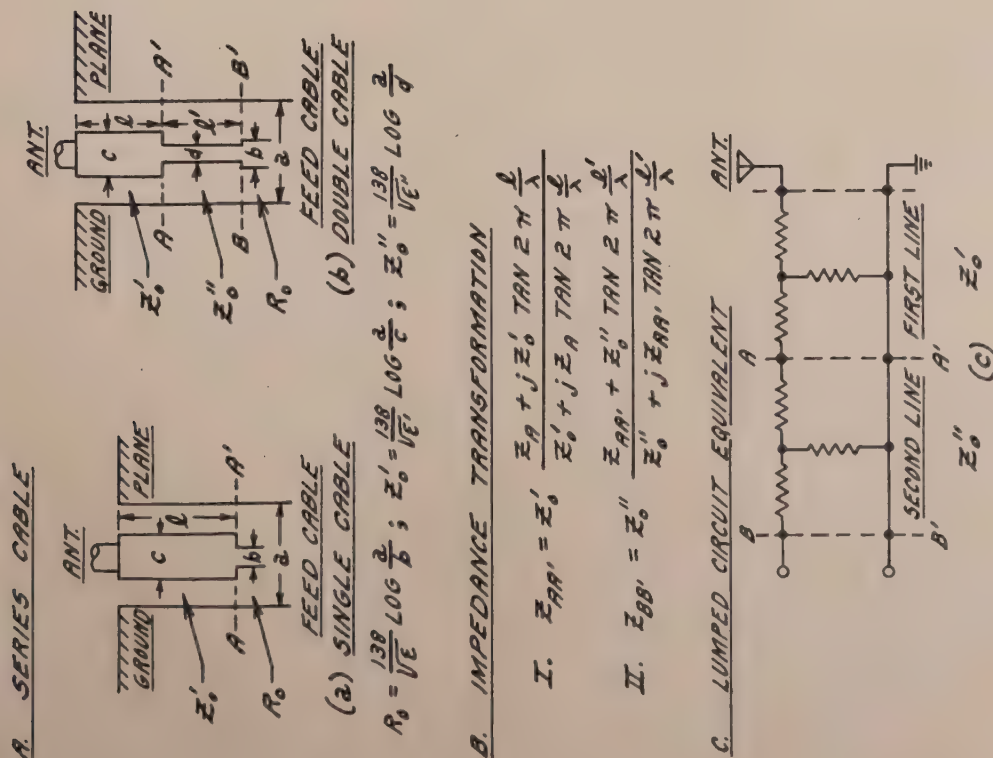 A. SERIES CABLE
ANT.
GROUND PLANE
c l
Z₀'
A A'
b
R₀ a
FEED CABLE
(a) SINGLE CABLE
ANT.
GROUND PLANE
c l
Z₀'
A A'
Z₀'' d l'
B b B'
R₀ a
FEED CABLE
(b) DOUBLE CABLE
R₀ = 138/√ε LOG a/b ; Z₀' = 138/√ε' LOG a/c ; Z₀'' = 138/√ε'' LOG a/d
B. IMPEDANCE TRANSFORMATION
I. Z_AA' = Z₀' (Z_A + j Z₀' TAN 2 π l/λ) / (Z₀' + j Z_A TAN 2 π l/λ)
II. Z_BB' = Z₀'' (Z_AA' + Z₀'' TAN 2 π l'/λ) / (Z₀'' + j Z_AA' TAN 2 π l'/λ)
C. LUMPED CIRCUIT EQUIVALENT
B A ANT.
SECOND LINE FIRST LINE
B' A'
Z₀'' Z₀'
(c)